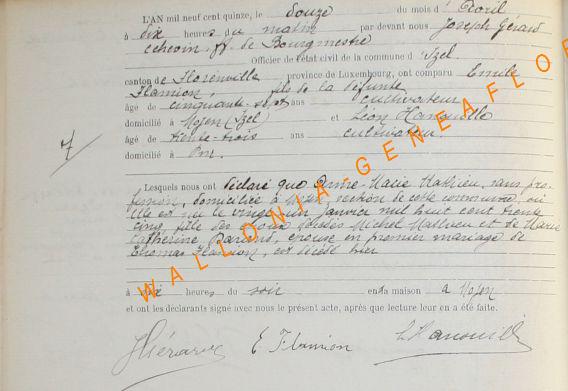 L'AN mil neuf cent quinze, le douze du mois d'Avril
à dix heures du matin par devant nous Joseph Gérard
échevin, ff. de Bourgmestre
Officier de l'état civil de la commune d'Izel
canton de Florenville province de Luxembourg, ont comparu Emile
Flamion, fils de la défunte
âgé de cinquante-sept ans cultivateur
domicilié à Moyen (Izel) et Léon
âgé de trente-trois ans cultivateur
domicilié à
7/
Lesquels nous ont déclaré que Marie Mathieu, sans pro-
fession, domiciliée à section de cette commune, où
elle est née le vingt un janvier mil huit cent trente
cinq, fille des époux Michel Mathieu et de Marie
Catherine épouse en premier mariage de
Thomas Flamion, est décédée hier
à dix heures du soir en sa maison à Moyen
et ont les déclarants signé avec nous le présent acte, après que lecture leur en a été faite.
JGérard E Flamion
WALLONIA-GENEAFLO